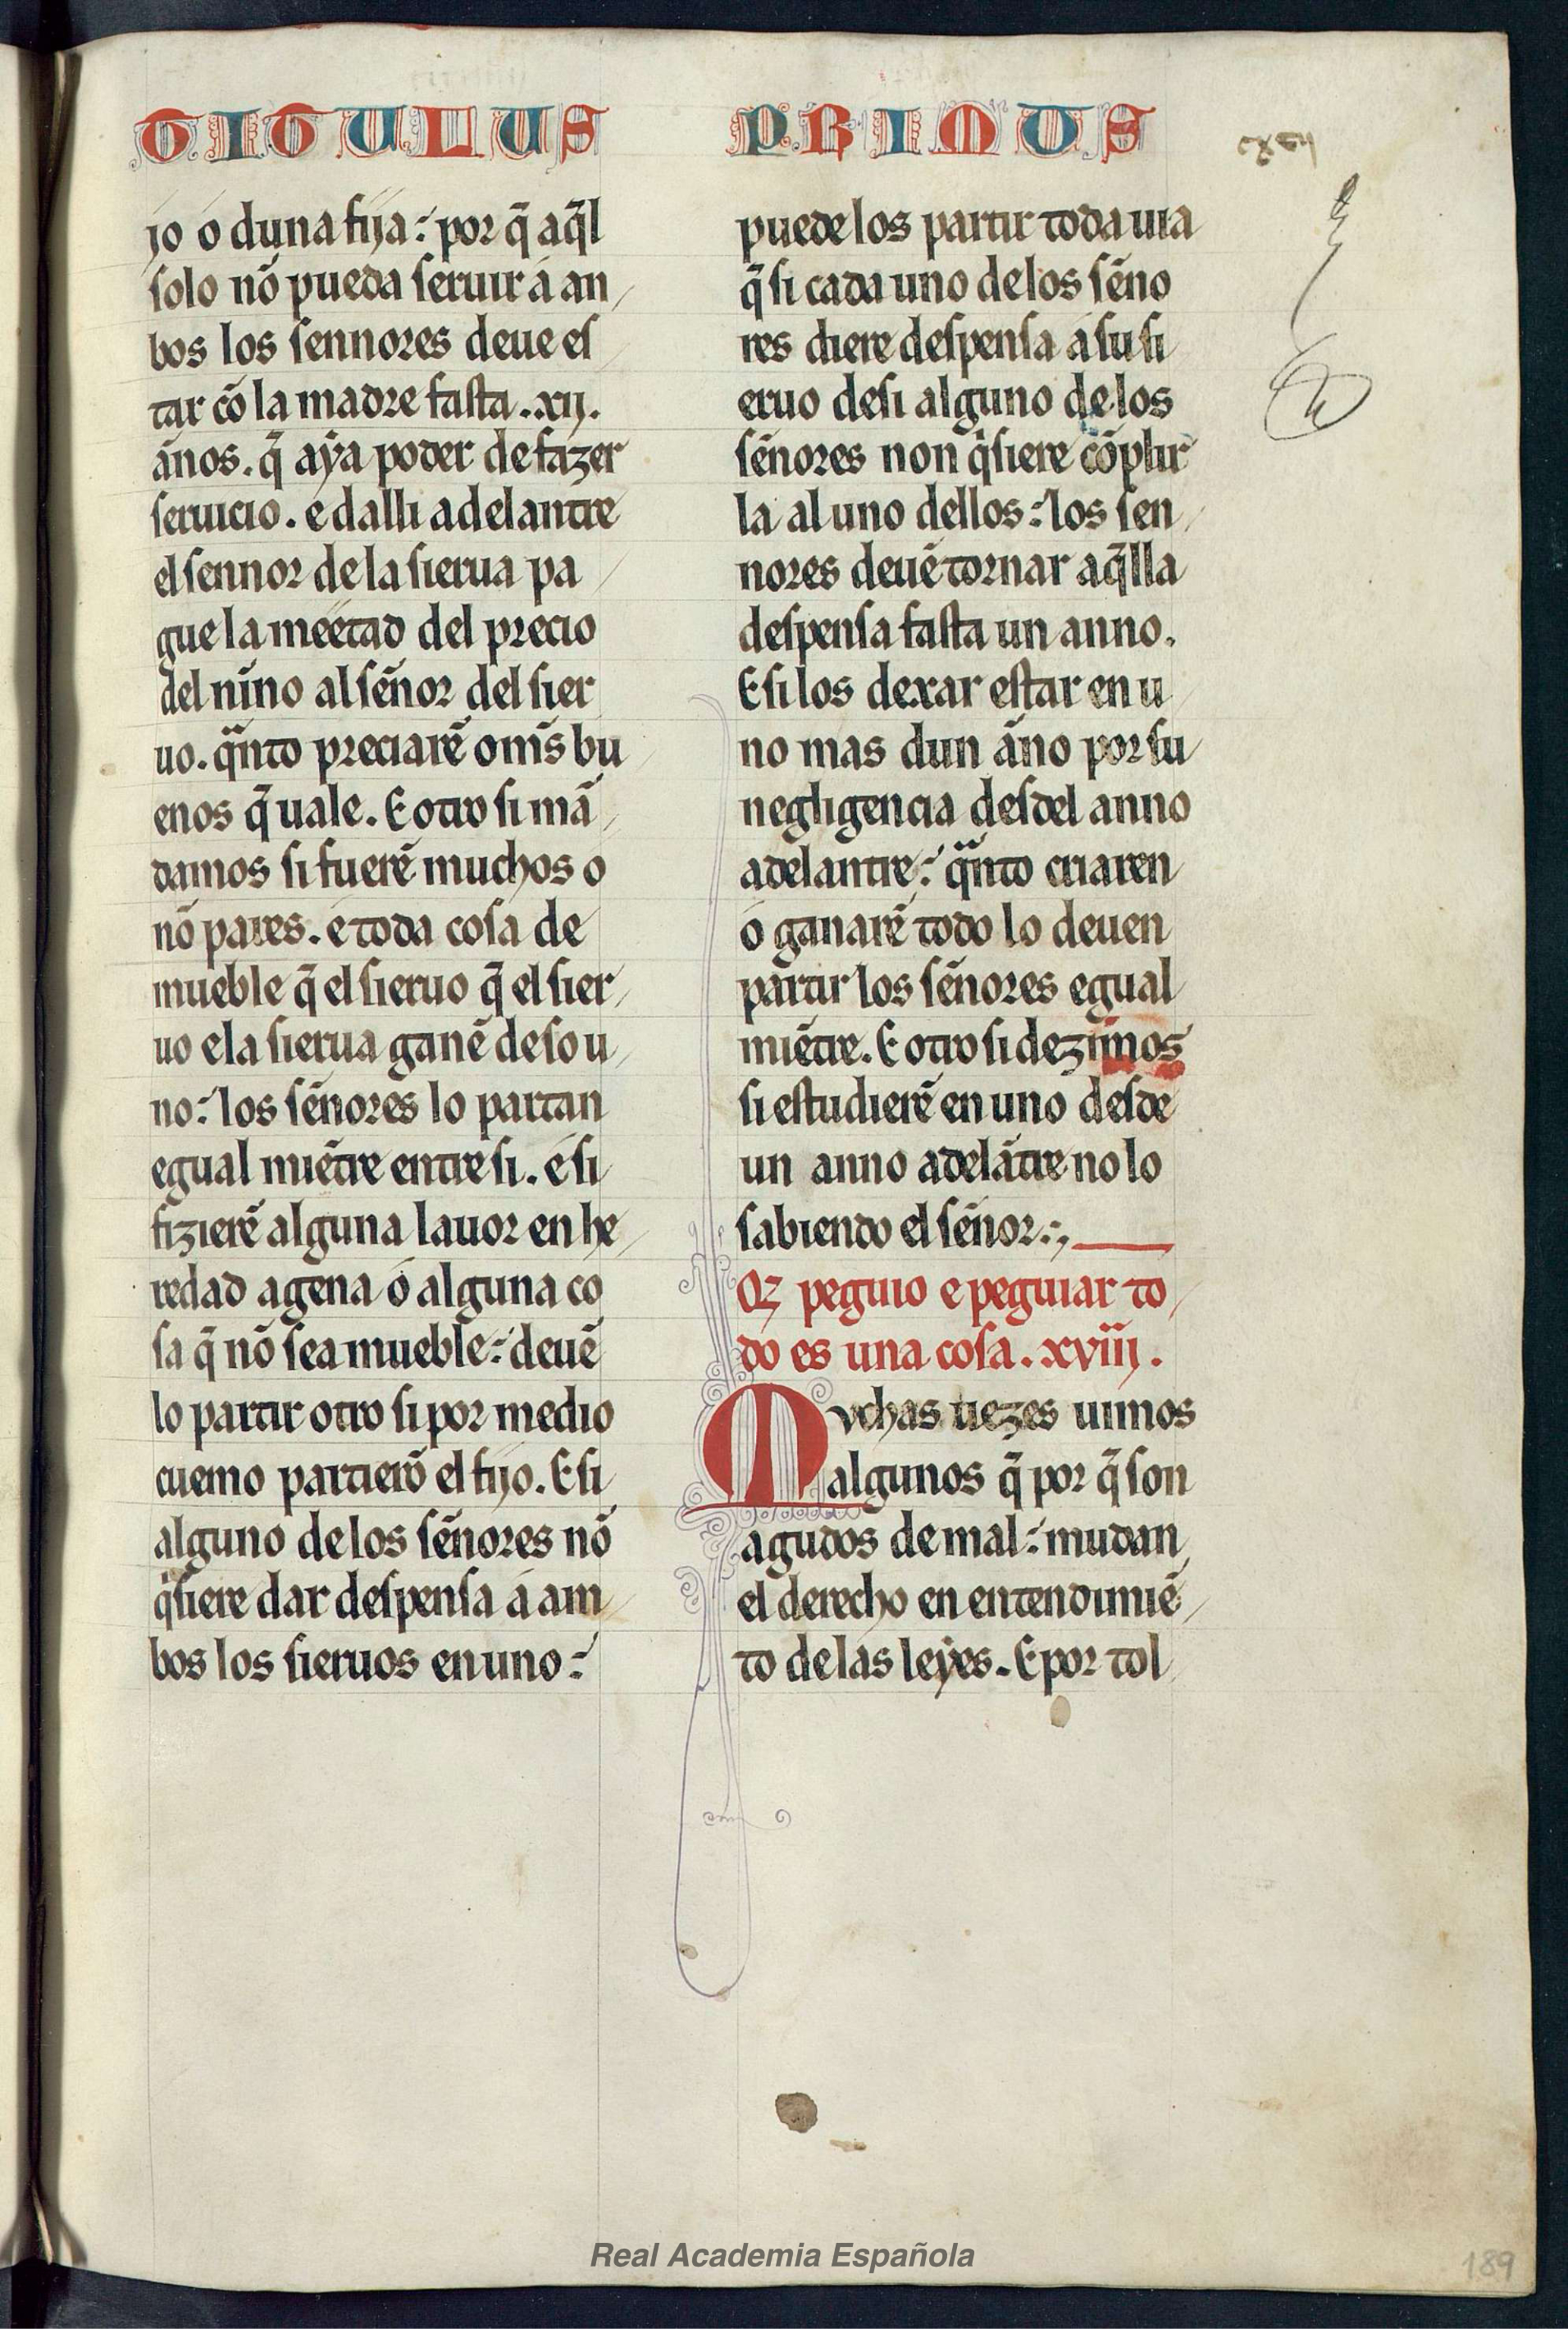 TITULUS PRIMUS
cxcij
jo o duna fija: por q̃ aq̃l
solo nõ pueda seruir á an
bos los sennores deue es
tar cõ la madre fasta .xij.
ãnos. q̃ aẏa poder de fazer
seruicio. e dalli adelantre
el sennor de la sierua pa
gue la meetad del precio
del nĩno al sẽnor del sier
uo. qñto preciarẽ om̃s bu
enos q̃ uale. E otro si mã
damos si fuerẽ muchos o
nõ pares. e toda cosa de
mueble q̃ el sieruo q̃ el sier
uo e la sierua ganẽ de so u
no: los sẽnores lo partan
egual miẽtre entre si. e si
fizierẽ alguna lauor en he
redad agena ó alguna co
sa q̃ nõ sea mueble: deuẽ
lo partir otro si por medio
cuemo partierõ el fijo. E si
alguno de los sẽnores nõ
q̃siere dar despensa á am
bos los sieruos en uno:
puede los partir toda uia
q̃ si cada uno de los sẽno
res diere despensa á su si
eruo de si alguno de los
sẽnores non q̃siere cõplir
la al uno dellos: los sen
nores deuẽ tornar aq̃lla
despensa fasta un anno.
E si los dexar estar en u
no mas dun ãno por su
negligencia desdel anno
adelantre: qñto criaren
o ganarẽ todo lo deuen
partir los sẽnores egual
miẽtre. E otro si dezimos
si estudierẽ en uno desde
un anno adelãtre no lo
sabiendo el sẽnor:
Qz peguio e peguiar to
do es una cosa. xviij.
Mvchas uezes uimos
algunos q̃ por q̃ son
agudos de mal: mudan
el derecho en entendimiẽ
to de las leẏes. E por tol
Real Academia Española
189